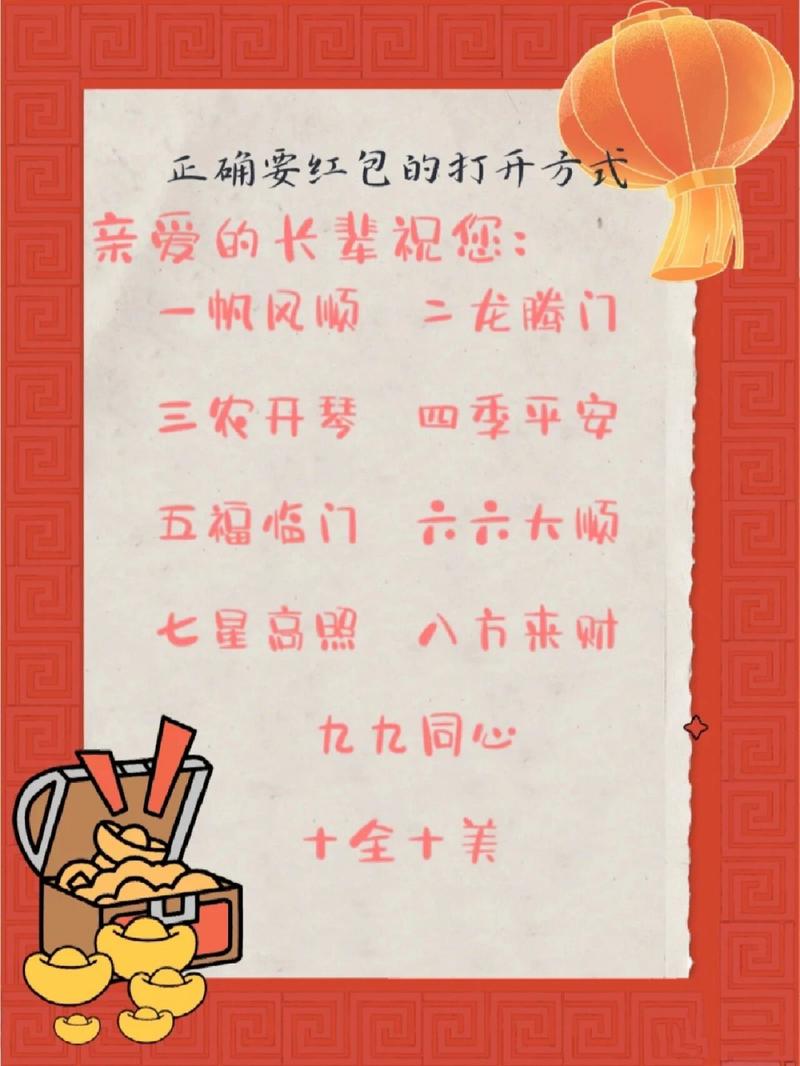 正确要红包的打开方式
亲爱的长辈祝您:
一帆风顺 二龙腾门
三农开琴 四季平安
五福临门 六六大顺
七星高照 八方来财
九九同心
十全十美